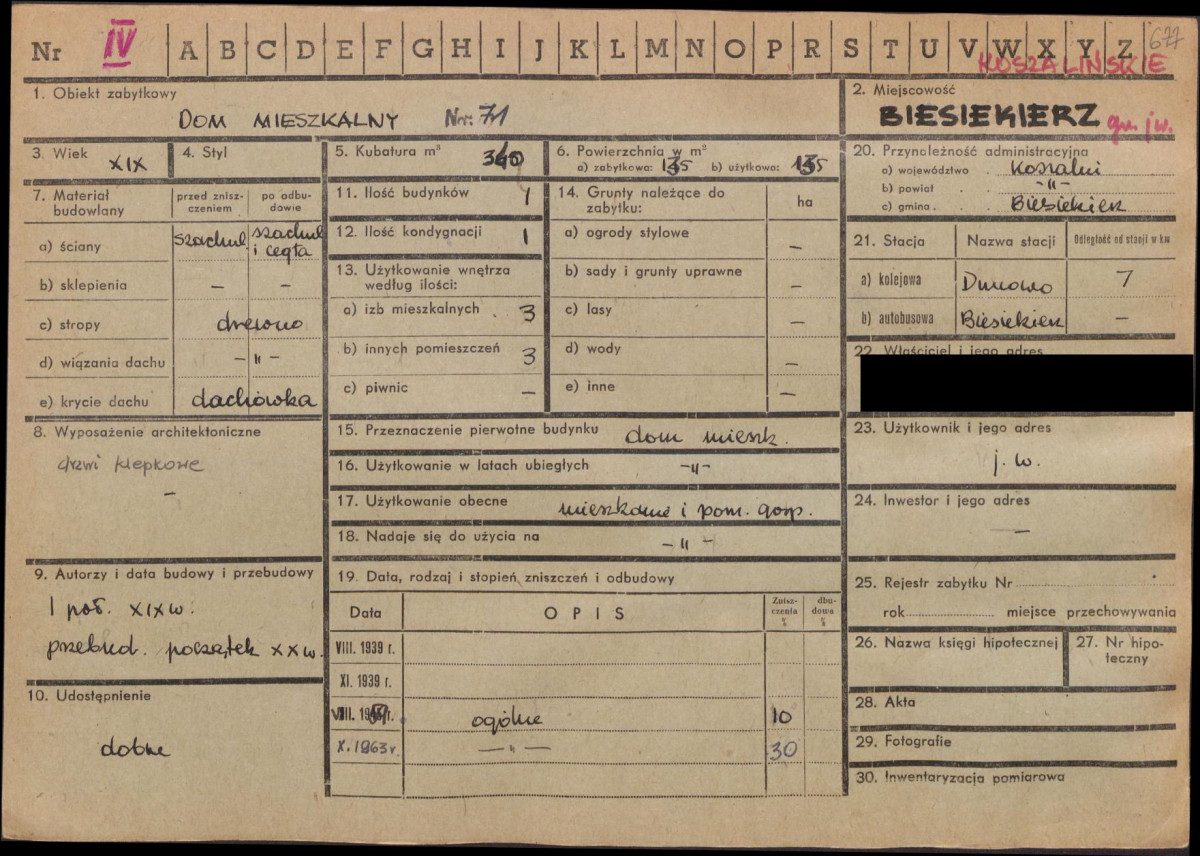 Nr IV A B C D E F G H I J K L M N O P R S T U V W X Y Z 677
KOSZALIŃSKIE
1. Obiekt zabytkowy
DOM MIESZKALNY Nr: 71
2. Miejscowość
BIESIEKIERZ gm. j w.
3. Wiek XIX
4. Styl
5. Kubatura m³ 360
6. Powierzchnia w m²
a) zabytkowa: 135 b) użytkowa: 135
7. Materiał budowlany
przed zniszczeniem
po odbudowie
a) ściany szachul. szachul i cegła
b) sklepienia – –
c) stropy drewno
d) wiązania dachu –„–
e) krycie dachu dachówka
8. Wyposażenie architektoniczne
drzwi klepkowe
–
9. Autorzy i data budowy i przebudowy
I poł. XIX w.
przebud. początek XX w.
10. Udostępnienie
dobre
11. Ilość budynków 1
12. Ilość kondygnacji 1
13. Użytkowanie wnętrza według ilości:
a) izb mieszkalnych 3
b) innych pomieszczeń 3
c) piwnic –
14. Grunty należące do zabytku:
ha
a) ogrody stylowe –
b) sady i grunty uprawne –
c) lasy –
d) wody –
e) inne –
15. Przeznaczenie pierwotne budynku dom mieszk.
16. Użytkowanie w latach ubiegłych –„–
17. Użytkowanie obecne mieszkanie i pom. gosp.
18. Nadaje się do użycia na –„–
19. Data, rodzaj i stopień zniszczeń i odbudowy
Data OPIS Zniszczenia % dbudowa %
VIII. 1939 r.
XI. 1939 r.
VIII. r. ogólne 10
X. 1963 r. –„– 30
20. Przynależność administracyjna
a) województwo Koszalin
b) powiat –„–
c) gmina Biesiekierz
21. Stacja Nazwa stacji Odległość od stacji w km
a) kolejowa Dunowo 7
b) autobusowa Biesiekierz –
22. Właściciel i jego adres
23. Użytkownik i jego adres
j. w.
24. Inwestor i jego adres
–
25. Rejestr zabytku Nr
rok miejsce przechowywania
26. Nazwa księgi hipotecznej
27. Nr hipoteczny
28. Akta
29. Fotografie
30. Inwentaryzacja pomiarowa